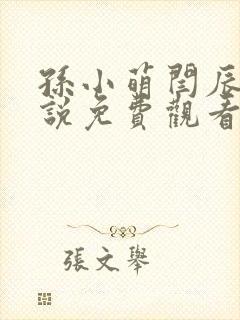 孫小萌閆辰
說免費觀看
張文舉